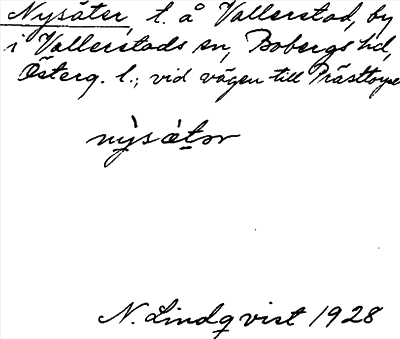 Nysäter, t. å Vallerstad, by
i Vallerstads sn, Bobergs hd,
Österg. l.; vid vägen till Prästtorpe
nỳsátər
N. Lindqvist 1928